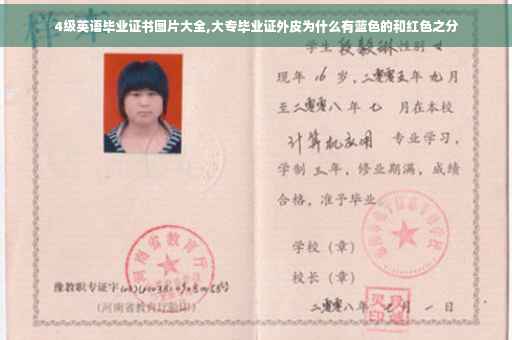 4级英语毕业证书图片大全,大专毕业证外皮为什么有蓝色的和红色之分
学生 段毅琳 性别 女
现年 16 岁，二零零五年 九月
至二零零八年 七 月在本校
计算机应用 专业学习，
学制 三 年，修业期满，成绩
合格，准予毕业。
学校（章）
校长（章）
二零零八年 七 月 一 日
河南省教育厅
豫教职专证字
（河南省教育厅验印）